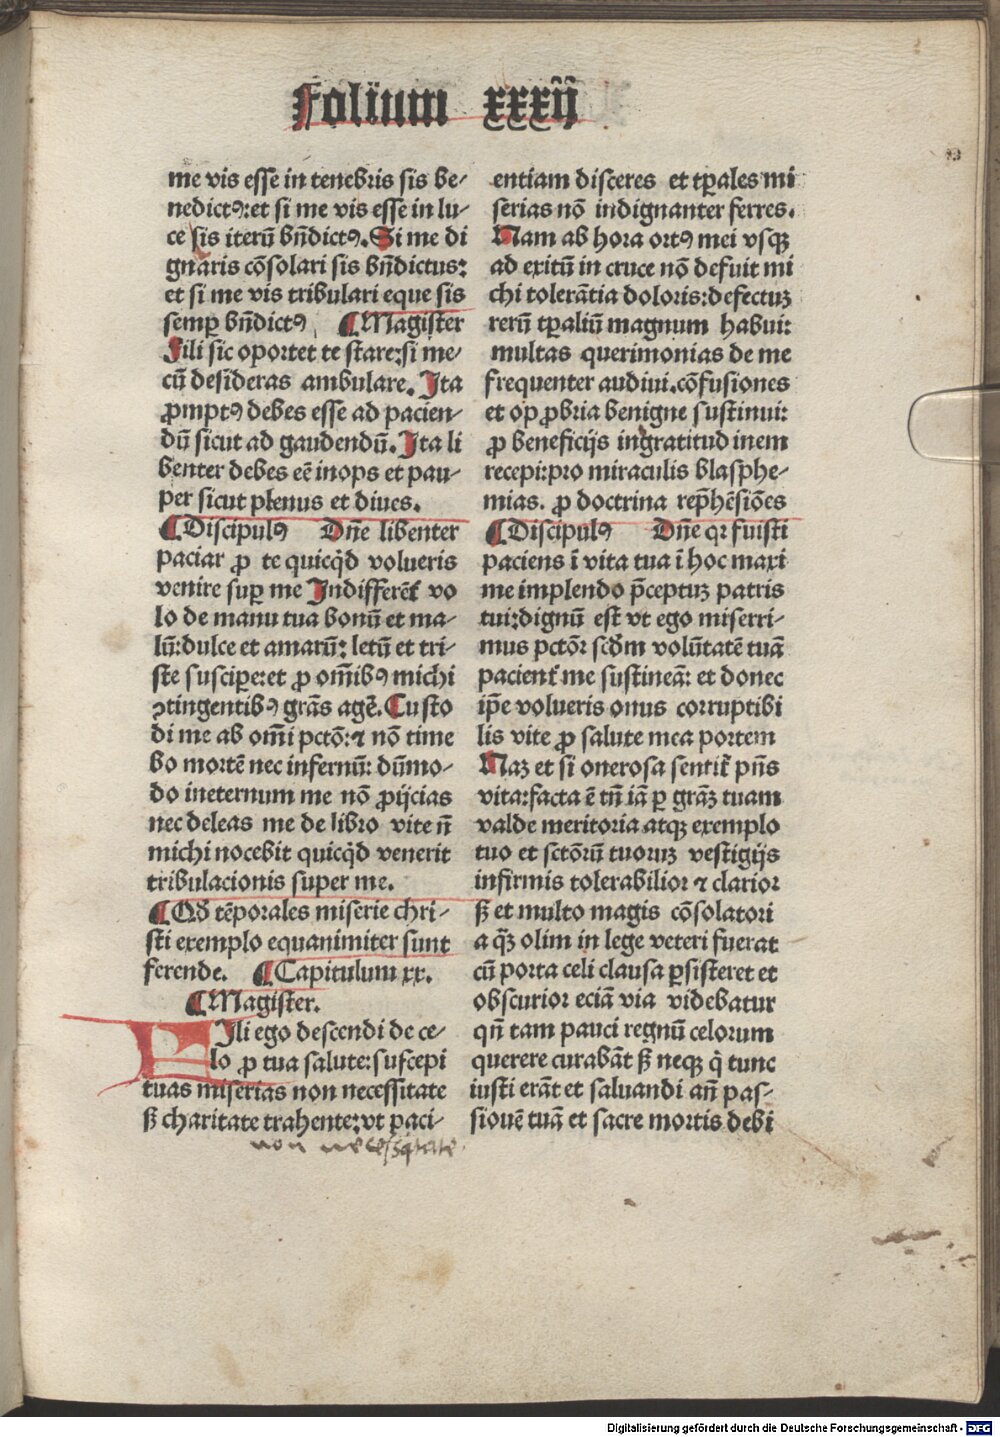 Folium xxxij
me vis esse in tenebris sis be-
nedictꝰ:et si me vis esse in lu-
ce sis iterū bn̄dictꝰ.Si me di
gnaris cōsolari sis bn̄dictus:
et si me vis tribulari eque sis
semp̱ bn̄dictꝰ ¶Magister
Fili sic oportet te stare:si me-
cū desideras ambulare.Ita
ꝓmptꝰ debes esse ad pacien-
dū sicut ad gaudendū.Ita li
benter debes eē inops et pau-
per sicut plenus et diues.
¶Discipulꝰ Dn̄e libenter
paciar ꝓ te quicq̇d volueris
venire suꝑ me Indifferēt̛ vo
lo de manu tua bonū et ma-
lū:dulce et amarū: letū et tri-
ste suscipe:et ꝓ om̄ibꝰ michi
ꝯtingentibꝰ grās agē.Custo
di me ab om̄i pctō:⁊ nō time
bo mortē nec infernū: dūmo-
do ineternum me nō ꝓijcias
nec deleas me de libro vite n̄
michi nocebit quicq̇d venerit
tribulacionis super me.
¶Qd̛ tēporales miserie chri-
sti exemplo equanimiter sunt
ferende. ¶Capitulum xx.
¶Magister.
FIli ego descendi de ce-
lo ꝓ tua salute:suscepi
tuas miserias non necessitate
ꝭ charitate trahente:vt paci-
non necessitate
entiam disceres et tꝑales mi
serias nō indignanter ferres.
Nam ab hora ortꝰ mei vsqꝫ
ad exitū in cruce nō defuit mi
chi tolerātia doloris:defectuꝫ
rerū tꝑaliū magnum habui:
multas querimonias de me
frequenter audiui.cōfusiones
et opꝓbria benigne sustinui:
ꝓ beneficijs ingratitudinem
recepi:pro miraculis blasphe-
mias. ꝓ doctrina rep̄hēsiōes
¶Discipulꝰ Dn̄e qꝛ fuisti
paciens ī vita tua ī hoc maxi
me implendo p̄ceptuꝫ patris
tui:dignū est vt ego miserri-
mus pctōr scd̄m volūtatē tuā
pacient̛ me sustineā: et donec
ip̄e volueris onus corruptibi
lis vite ꝓ salute mea portem
Naꝫ et si onerosa sentit̛ pn̄s
vita:facta ē tn̄ iā ꝑ grāꝫ tuam
valde meritoria atqꝫ exemplo
tuo et sctōrū tuoruꝫ vestigijs
infirmis tolerabilior ⁊ clarior
ꝭ et multo magis cōsolatori
a q̄ꝫ olim in lege veteri fuerat
cū porta celi clausa ꝑsisteret et
obscurior eciā via videbatur
qn̄ tam pauci regnū celorum
querere curabāt ꝭ neqꝫ q̇ tunc
iusti erāt et saluandi an̄ pas-
sionē tuā et sacre mortis debi
Digitalisierung gefördert durch die Deutsche Forschungsgemeinschaft - DFG